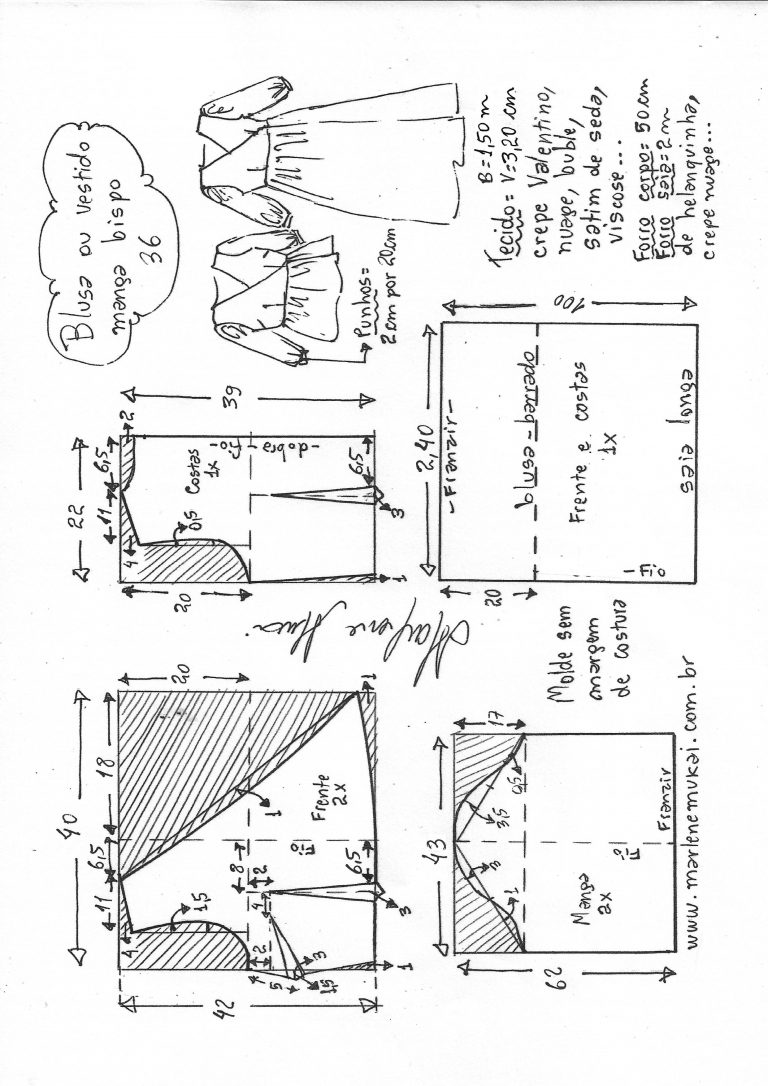 Blusa ou vestido
manga bispo
36
Punhos=
2cm por 20cm
Tecido= B=1,50m
V=3,20cm
crepe Valentino,
nuage, buble,
satim de seda,
viscose...
Forro corpo= 50cm
Forro saia=2m
de helanquinha,
crepe nuage...
22
11
6,5
2
39
4
0,5
Costas
1x
-dobra-
Fio-
20
6,5
3
1
2,40
100
-Franzir-
blusa-barrado
Frente e costas
1x
saia longa
20
-Fio
Marlene Mukai
40
11
6,5
18
20
4
1,5
1
Frente
2x
Fio
8
2
4
4
2
5
3
1,5
6,5
3
1
1
42
Molde sem
margem
de costura
43
17
3
3,5
0,5
1
Manga
2x
Fio
Franzir
62
www.marlenemukai.com.br